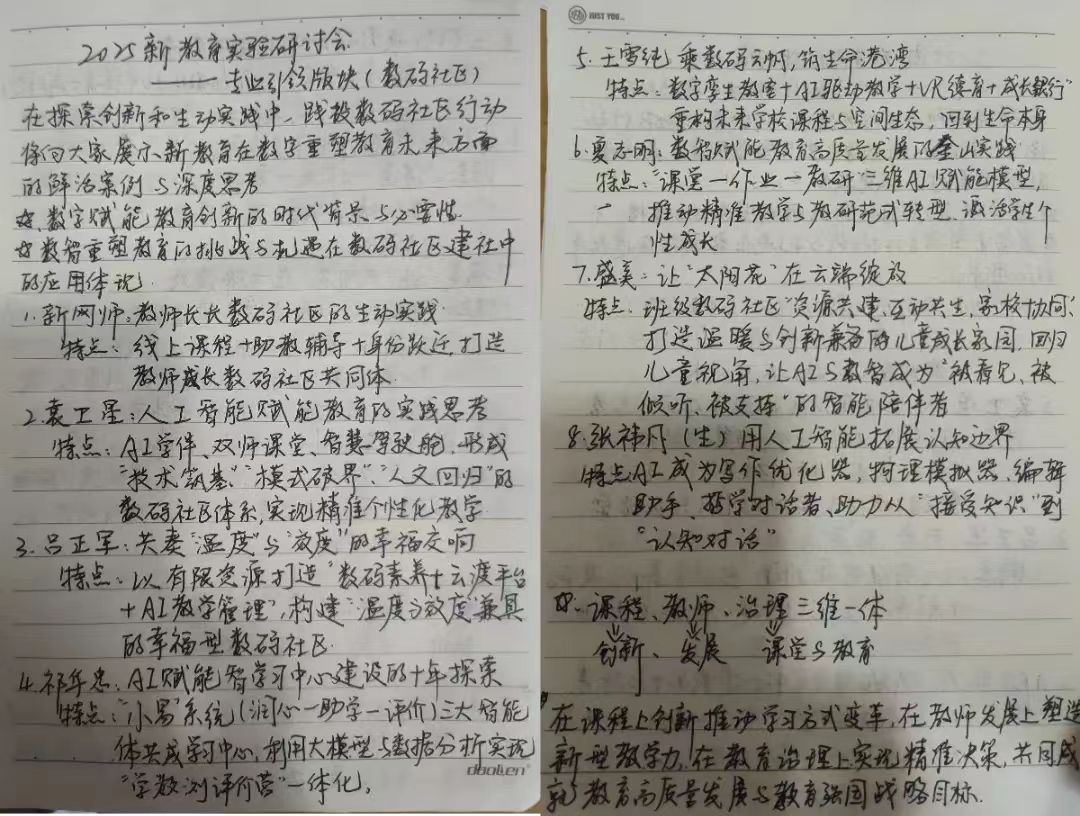 2025新教育实验研讨会
——专业引领版块（数码社区）
在探索创新和生动实践中，践投数码社区行动
将向大家展示新教育在数字重塑教育未来方面
的鲜活案例与深度思考
☆、数字赋能教育创新的时代背景与必要性
☆数智重塑教育的挑战与机遇在数码社区建社中
的应用体现
1.新网师：教师长长数码社区的生动实践
特点：线上课程+助教辅导+身份跃迁，打造
教师成长数码社区共同体.
2.袁卫星：人工智能赋能教育的实践思考
特点：AI学伴、双师课堂、智慧驾驶舱，形成
"技术筑基""模式破界"、"人文回归"的
数码社区体系，实现精准个性化教学
3.吕正军：共奏"温度"与"效度"的幸福交响
特点：以有限资源打造"数码素养+云渡平台
+AI教学管理"，构建"温度与效度"兼具
的幸福型数码社区.
4.祁华忠：AI赋能智学习中心建设的十年探索
特点："小易"系统（润心—助学—评价）三大智能
体共成学习中心，利用大模型与数据分析实现
"学教测评价营"一体化。
doolien
JUST YOU...
5.王雪纯 乘数码云帆，筑生命港湾
特点：数字孪生教室+AI驱动教学+VR德育+成长银行"
重构未来学校课程与空间生态，回到生命本身
6.夏志明：数智赋能教育高质量发展的奎山实践
特点："课堂—作业—教研"三维AI赋能模型，
推动精准教学与教研范式转型，激活学生个
性成长
7.盛美：让"太阳花"在云端绽放
特点：班级数码社区"资源共建、互动共生、家校协同"
打造温暖与创新兼备的儿童成长家园，回归
儿童视角，让AI与数智成为"被看见、被
倾听、被支持"的智能陪伴者
8.张祎凡（生）用人工智能拓展认知边界
特点：AI成为写作优化器，物理模拟器、编辑
助手、哲学对话者、助力从"接受知识"到
"认知对话"
☆.课程、教师、治理三维一体
创新、发展 课堂与教育
在课程上创新推动学习方式变革，在教师发展上塑造
新型教学力，在教育治理上实现精准决策，共同成
就教育高质量发展与教育强国战略目标.